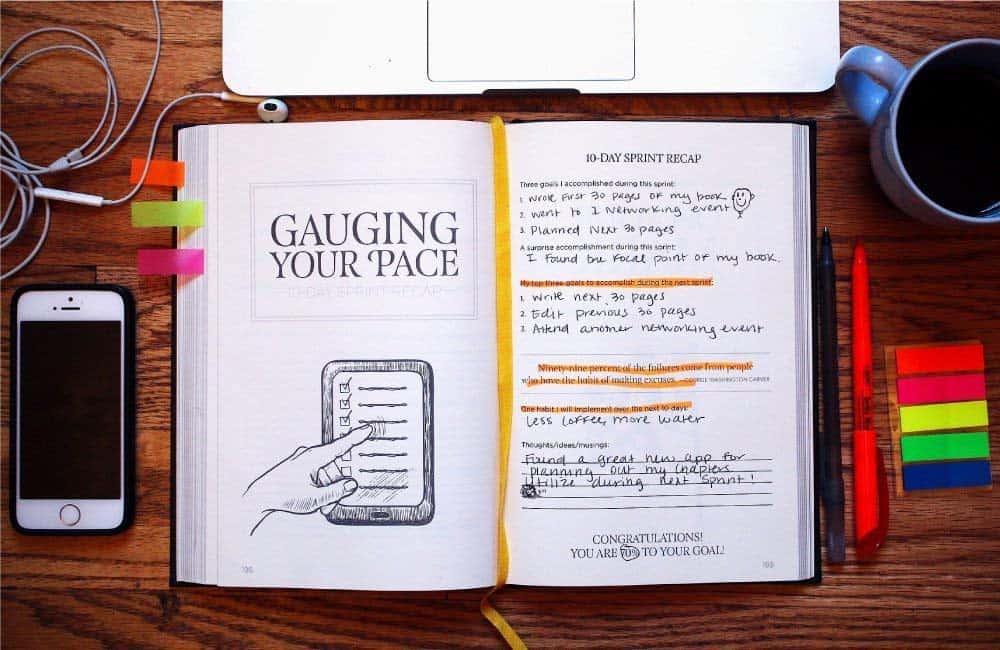 GAUGING
YOUR PACE
10-DAY SPRINT RECAP
196
10-DAY SPRINT RECAP
Three goals I accomplished during this sprint:
1. Wrote First 30 pages of my book
2. Went to 1 Networking event
3. Planned Next 30 pages
A surprise accomplishment during this sprint:
I found the focal point of my book.
My top three goals to accomplish during the next sprint:
1. Write next 30 pages
2. Edit previous 30 pages
3. Attend another networking event
Ninety-nine percent of the failures come from people
who have the habit of making excuses. —GEORGE WASHINGTON CARVER
One habit I will implement over the next 10 days:
Less Coffee, more water
Thoughts/ideas/musings:
Found a great new app for
planning out my chapters.
Utilize during next Sprint!
CONGRATULATIONS!
YOU ARE 70% TO YOUR GOAL!